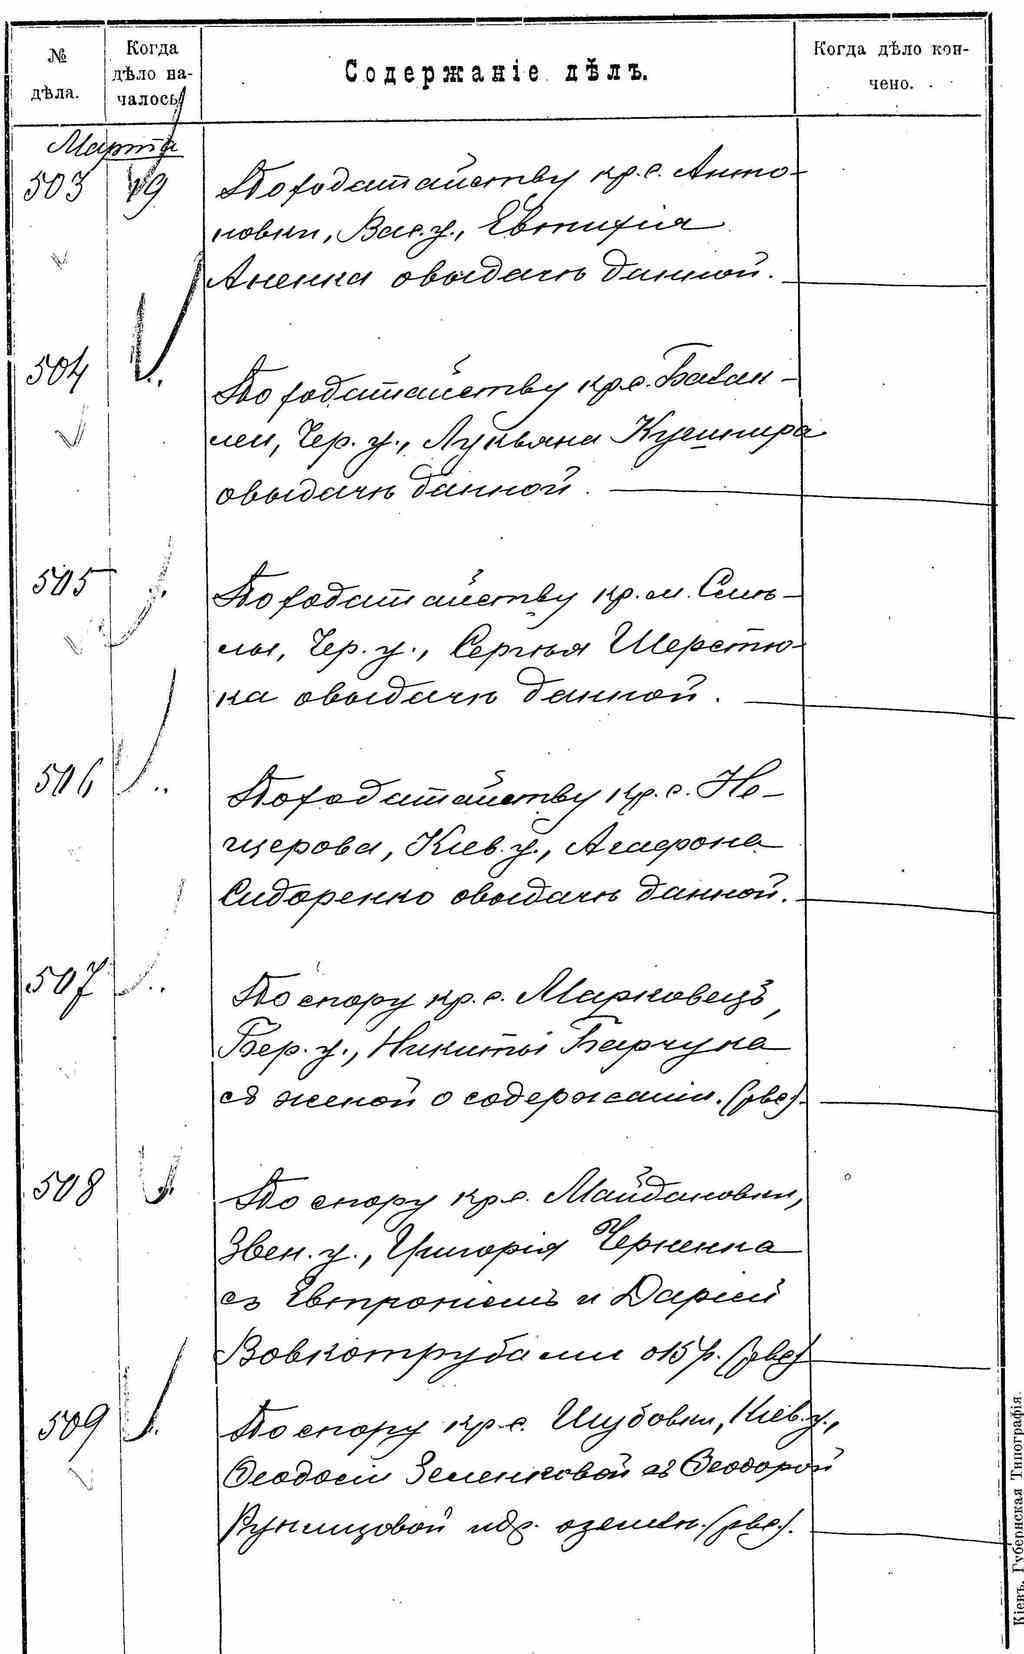 № дѣла.
Когда дѣло началось
Содержаніе дѣлъ.
Когда дѣло кончено.
Марта
503 19 По ходатайству кр. с. Анто-
новки, Вас. у., Евтихія
Аненка о выдачѣ данной.
504 „ По ходатайству кр. с. Балак-
леи, Чер. у., Лукьяна Кушнира
о выдачѣ данной.
505 „ По ходатайству кр. м. Смѣ-
лы, Чер. у., Сергѣя Шерстю-
ка о выдачѣ данной.
506 „ По ходатайству кр. с. Не-
щерова, Кіев. у., Агафона
Сидоренко о выдачѣ данной.
507 „ По спору кр. с. Марковецъ,
Бер. у., Никиты Барчука
съ женой о содержаніи. (рвс).
508 „ По спору кр. с. Майдановки,
Звен. у., Григорія Черненка
съ и Даріей
Вовкотрубами о 15 р. (рвс)
509 „ По спору кр. с. Шубовки, Кіев. у.,
Феодосіи Зеленковой съ Феодорой
и др. о землѣ. (рвс.).
Кіевъ, Губернская Типографія.